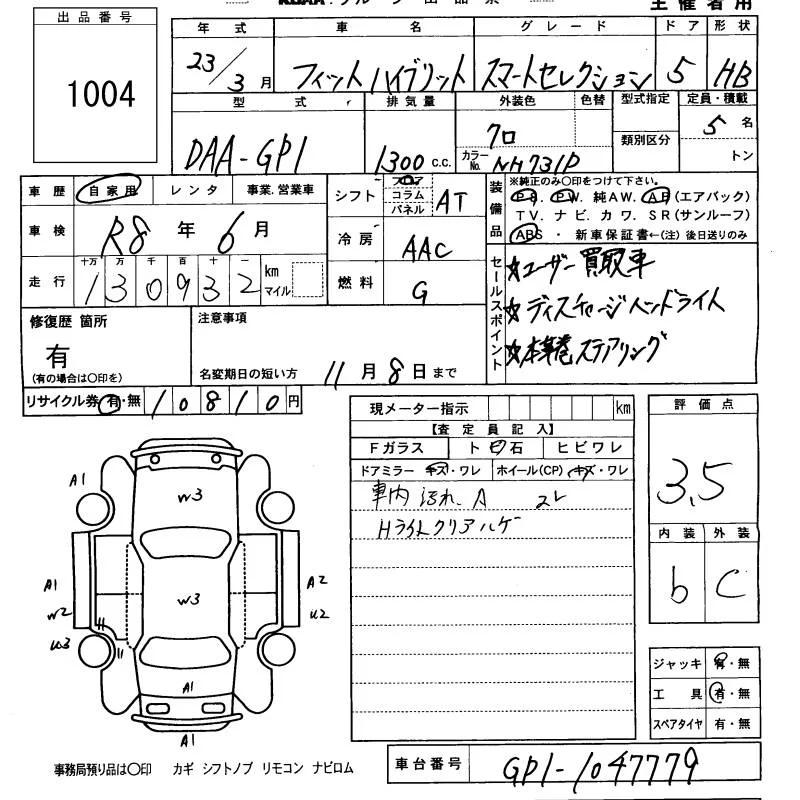 出品番号
1004
年式 車名 グレード ドア 形状
23/3月 フィットハイブリット スマートセレクション 5 HB
型式 排気量 外装色 色替 型式指定 定員・積載
DAA-GP1 1300 c.c. クロ カラーNo. NH731P 類別区分 5名
トン
車歴 自家用 レンタ 事業.営業車
車検 R8年6月
走行 十万 万 千 百 十 一
130932 km マイル
シフト コラム パネル AT
冷房 AAC
燃料 G
装備品 ※純正のみ○印をつけて下さい。
P.S. P.W. 純AW. A.B(エアバック)
TV. ナビ. カワ. SR(サンルーフ)
ABS ・ 新車保証書←(注)後日送りのみ
セールスポイント
☆ユーザー買取車
☆ディスチャージヘッドライト
☆本革巻ステアリング
修復歴 箇所
有
(有の場合は○印を)
注意事項
名変期日の短い方 11月8日まで
リサイクル券 有・無 10810円
現メーター指示 km
【査定員記入】
Fガラス ト 石 ヒビワレ
ドアミラー キズ・ワレ ホイール(CP) キズ・ワレ
車内 汚れ.A コレ
Hライトクリアハゲ
評価点
3.5
内装 外装
b C
A1
W3
A1
W2
W3
W3
A2
U2
A1
A1
ジャッキ 有・無
工具 有・無
スペアタイヤ 有・無
事務局預り品は○印 カギ シフトノブ リモコン ナビロム
車台番号 GP1-1047779